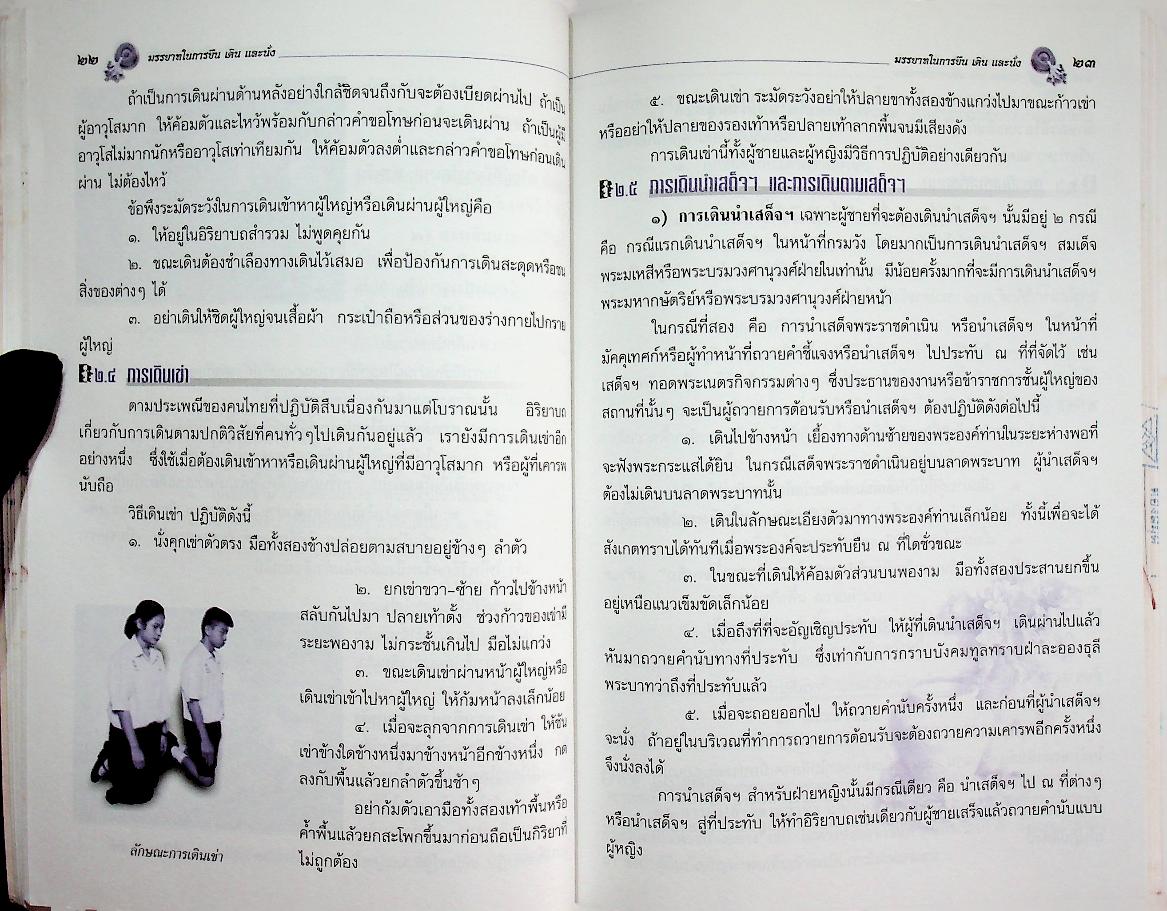 ๒๒ มรรยาทในการยืน เดิน และนั่ง
ถ้าเป็นการเดินผ่านด้านหลังอย่างใกล้ชิดจนถึงกับจะต้องเบียดผ่านไป ถ้าเป็น
ผู้อาวุโสมาก ให้ค้อมตัวและไหว้พร้อมกับกล่าวคำขอโทษก่อนจะเดินผ่าน ถ้าเป็นผู้มี
อาวุโสไม่มากนักหรืออาวุโสเท่าเทียมกัน ให้ค้อมตัวลงต่ำและกล่าวคำขอโทษก่อนเดิน
ผ่าน ไม่ต้องไหว้
ข้อพึงระมัดระวังในการเดินเข้าหาผู้ใหญ่หรือเดินผ่านผู้ใหญ่คือ
๑. ให้อยู่ในอิริยาบถสำรวม ไม่พูดคุยกัน
๒. ขณะเดินต้องชำเลืองทางเดินไว้เสมอ เพื่อป้องกันการเดินสะดุดหรือชน
สิ่งของต่างๆ ได้
๓. อย่าเดินให้ชิดผู้ใหญ่จนเสื้อผ้า กระเป๋าถือหรือส่วนของร่างกายไปกราย
ผู้ใหญ่
๒.๔ การเดินเข่า
ตามประเพณีของคนไทยที่ปฏิบัติสืบเนื่องกันมาแต่โบราณนั้น อิริยาบถ
เกี่ยวกับการเดินตามปกติวิสัยที่คนทั่วๆไปเดินกันอยู่แล้ว เรายังมีการเดินเข่าอีก
อย่างหนึ่ง ซึ่งใช้เมื่อต้องเดินเข้าหาหรือเดินผ่านผู้ใหญ่ที่มีอาวุโสมาก หรือผู้ที่เคารพ
นับถือ
วิธีเดินเข่า ปฏิบัติดังนี้
๑. นั่งคุกเข่าตัวตรง มือทั้งสองข้างปล่อยตามสบายอยู่ข้างๆ ลำตัว
๒. ยกเข่าขวา-ซ้าย ก้าวไปข้างหน้า
สลับกันไปมา ปลายเท้าตั้ง ช่วงก้าวของเข่ามี
ระยะพองาม ไม่กระชั้นเกินไป มือไม่แกว่ง
๓. ขณะเดินเข่าผ่านหน้าผู้ใหญ่หรือ
เดินเข่าเข้าไปหาผู้ใหญ่ ให้ก้มหน้าลงเล็กน้อย
๔. เมื่อจะลุกจากการเดินเข่า ให้ชัน
เข่าข้างใดข้างหนึ่งมาข้างหน้าอีกข้างหนึ่ง กด
ลงกับพื้นแล้วยกลำตัวขึ้นช้าๆ
อย่าก้มตัวเอามือทั้งสองเท้าพื้นหรือ
ค้ำพื้นแล้วยกสะโพกขึ้นมาก่อนถือเป็นกิริยาที่
ไม่ถูกต้อง
ลักษณะการเดินเข่า
มรรยาทในการยืน เดิน และนั่ง ๒๓
๕. ขณะเดินเข่า ระมัดระวังอย่าให้ปลายขาทั้งสองข้างแกว่งไปมาขณะก้าวเข่า
หรืออย่าให้ปลายของรองเท้าหรือปลายเท้าลากพื้นจนมีเสียงดัง
การเดินเข่านี้ทั้งผู้ชายและผู้หญิงมีวิธีการปฏิบัติอย่างเดียวกัน
๒.๕ การเดินนำเสด็จฯ และการเดินตามเสด็จฯ
๑) การเดินนำเสด็จฯ เฉพาะผู้ชายที่จะต้องเดินนำเสด็จฯ นั้นมีอยู่ ๒ กรณี
คือ กรณีแรกเดินนำเสด็จฯ ในหน้าที่กรมวัง โดยมากเป็นการเดินนำเสด็จฯ สมเด็จ
พระมเหสีหรือพระบรมวงศานุวงศ์ฝ่ายในเท่านั้น มีน้อยครั้งมากที่จะมีการเดินนำเสด็จฯ
พระมหากษัตริย์หรือพระบรมวงศานุวงศ์ฝ่ายหน้า
ในกรณีที่สอง คือ การนำเสด็จพระราชดำเนิน หรือนำเสด็จฯ ในหน้าที่
มัคคุเทศก์หรือผู้ทำหน้าที่ถวายคำชี้แจงหรือนำเสด็จฯ ไปประทับ ณ ที่ที่จัดไว้ เช่น
เสด็จฯ ทอดพระเนตรกิจกรรมต่างๆ ซึ่งประธานของงานหรือข้าราชการชั้นผู้ใหญ่ของ
สถานที่นั้นๆ จะเป็นผู้ถวายการต้อนรับหรือนำเสด็จฯ ต้องปฏิบัติดังต่อไปนี้
๑. เดินไปข้างหน้า เยื้องทางด้านซ้ายของพระองค์ท่านในระยะห่างพอที่
จะฟังพระกระแสได้ยิน ในกรณีเสด็จพระราชดำเนินอยู่บนลาดพระบาท ผู้นำเสด็จฯ
ต้องไม่เดินบนลาดพระบาทนั้น
๒. เดินในลักษณะเอียงตัวมาทางพระองค์ท่านเล็กน้อย ทั้งนี้เพื่อจะได้
สังเกตทราบได้ทันทีเมื่อพระองค์จะประทับยืน ณ ที่ใดชั่วขณะ
๓. ในขณะที่เดินให้ค้อมตัวส่วนบนพองาม มือทั้งสองประสานยกขึ้น
อยู่เหนือแนวเข็มขัดเล็กน้อย
๔. เมื่อถึงที่ที่จะอัญเชิญประทับ ให้ผู้ที่เดินนำเสด็จฯ เดินผ่านไปแล้ว
หันมาถวายคำนับทางที่ประทับ ซึ่งเท่ากับการกราบบังคมทูลทราบฝ่าละอองธุลี
พระบาทว่าถึงที่ประทับแล้ว
๕. เมื่อจะถอยออกไป ให้ถวายคำนับครั้งหนึ่ง และก่อนที่ผู้นำเสด็จฯ
จะนั่ง ถ้าอยู่ในบริเวณที่ทำการถวายการต้อนรับจะต้องถวายความเคารพอีกครั้งหนึ่ง
จึงนั่งลงได้
การนำเสด็จฯ สำหรับฝ่ายหญิงนั้นมีกรณีเดียว คือ นำเสด็จฯ ไป ณ ที่ต่างๆ
หรือนำเสด็จฯ สู่ที่ประทับ ให้ทำอิริยาบถเช่นเดียวกับผู้ชายเสร็จแล้วถวายคำนับแบบ
ผู้หญิง